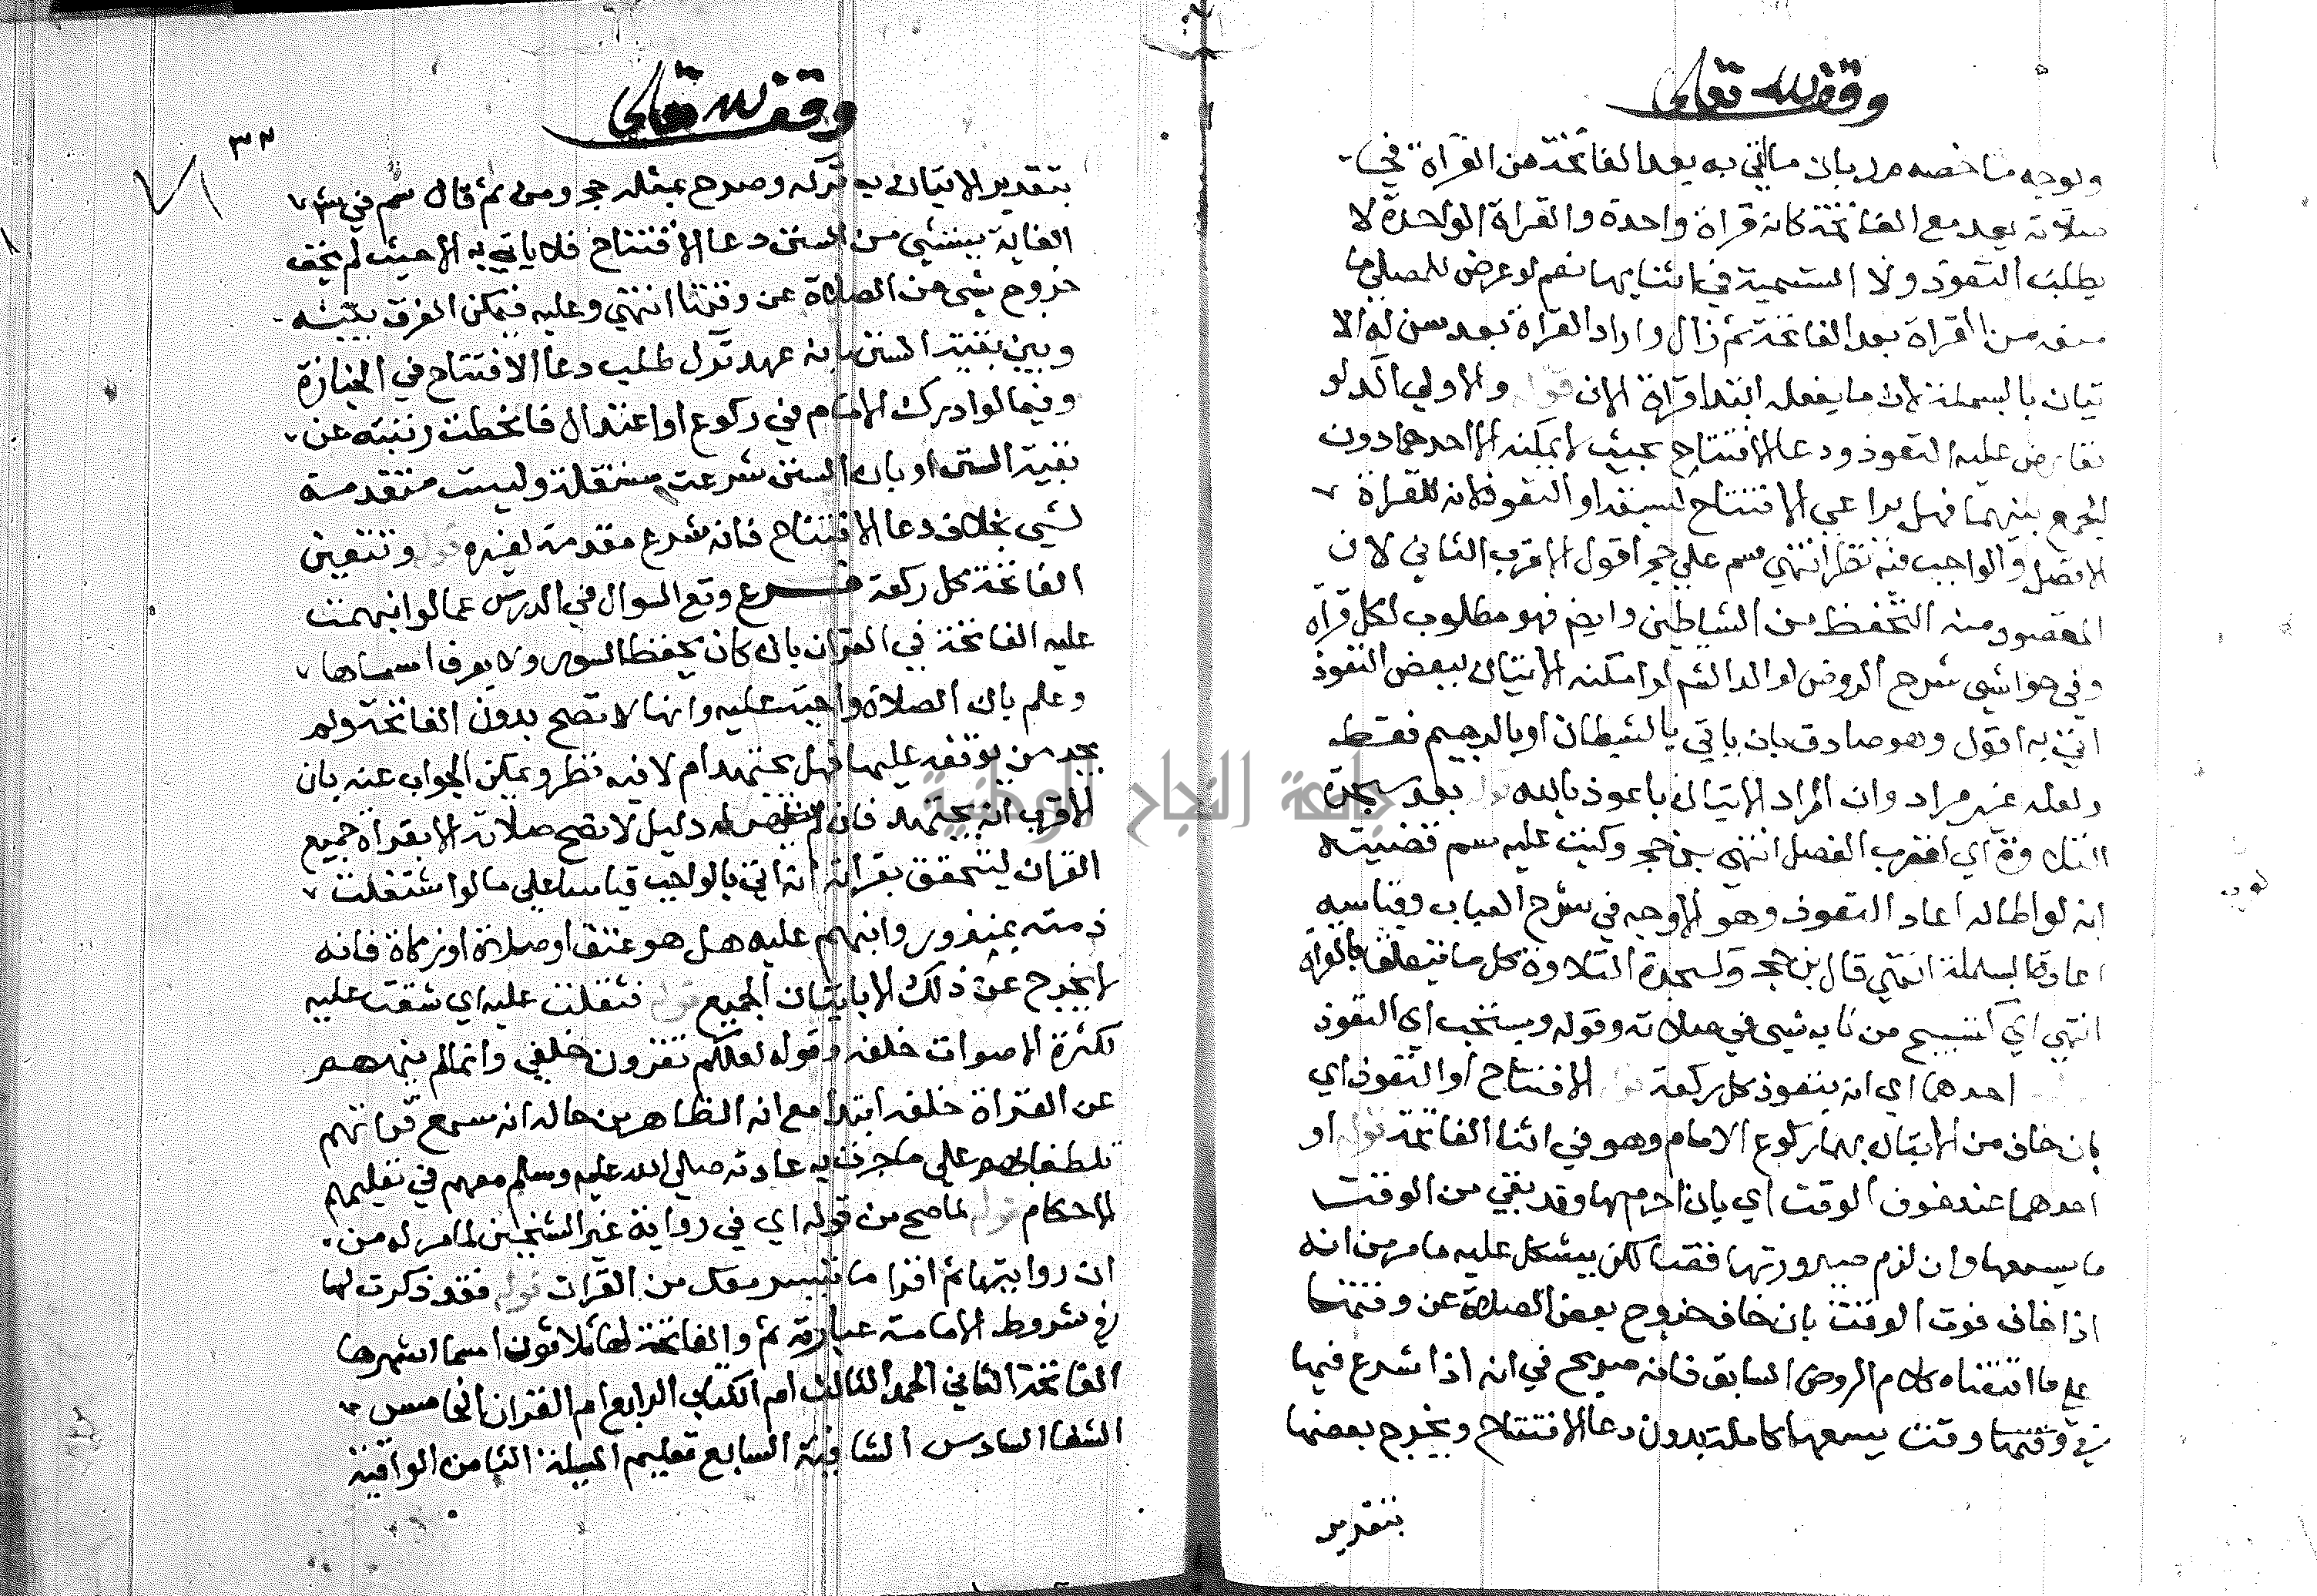 وقف لله تعالى
ويوجه ما خصه م ر بان ما اتي به بعد الفاتحة من القرآة في
صلاته يعد مع الفاتحة كانه قرآة واحدة والقرآة الواحدة لا
يطلب التعوذ ولا التسمية في اثنايها نعم لو عرض للمصلي ما
منعه من القرآة بعد الفاتحة ثم زال واراد القرآة بعد سن له الا
تيان بالبسملة لان ما يفعله ابتدا قرآة الان قوله والاولي آكد لو
تعارض عليه التعوذ ودعا الافتتاح بحيث لا يمكنه الا احدهما دون
الجمع بينهما فهل يراعي الافتتاح لسبقه او التعوذ لانه للقرآة
الافضل والواجب فيه نظر انتهي سم علي حج اقول الاقرب الثاني لان
المقصود منه التحفظ من الشيطان وايضا فهو مطلوب لكل قرآة
وفي حواشي شرح الروض لوالد الشم لو امكنه الاتيان ببعض التعوذ
اتي به اقول وهو صادق بان ياتي بالشيطان او بالرجيم فقط
ولعله غير مراد وان المراد الاتيان باعوذ بالله قوله بعد سجدة
التلاوة اي لقرب الفصل انتهي بن حجر وكتب عليه سم قضيته
انه لو اطاله اعاد التعوذ وهو الاوجه في شرح العباب وقياسه
اعادة البسملة انتهي قال بن حجر ولسجدة التلاوة كل ما يتعلق بالقرآة
انتهي اي كتسبيح من نابه شي في صلاته وقوله ويستحب اي التعوذ
احدهما اي انه يتعوذ كل ركعة قوله الافتتاح او التعوذ اي
بان خاف من الاتيان بهما ركوع الامام وهو في اثنا الفاتحة قوله او
احدهما عند خوف الوقت اي بان احرم بها وقد بقي من الوقت
ما يسعها وان لزم صيرورتها قضا لكن يشكل عليه ما مر من انه
اذا خاف فوت الوقت بان خاف خروج بعض الصلاة عن وقتها
علي ما اقتضاه كلام الروض السابق فانه صريح في انه اذا شرع فيها
في وقتها وقت يسعها كاملة بدون دعا الافتتاح ويخرج بعضها
بتقدير
وقف لله تعالى
٣٢
بتقدير الاتيان به تركه وصرح بمثله حج ومن ثم قال سم في شرح
الغاية يستثني من السنن دعا الافتتاح فلا ياتي به الا حيث لم يخف
خروج شي من الصلاة عن وقتها انتهي وعليه فيمكن الفرق بينه
وبين بقية السنن بانه عهد ترك طلب دعا الافتتاح في الجنازة
وفيما لو ادرك الامام في ركوع او اعتدال فانحطت رتبته عن
بقية السنن او بان السنن شرعت مستقلة وليست متقدمة
لشي بخلاف دعا الافتتاح فانه شرع مقدمة لغيره قوله وتتعين
الفاتحة كل ركعة فرع وقع السوال في الدرس عما لو انبهمت
عليه الفاتحة في القران بان كان يحفظ السور ولا يعرف اسماها
وعلم بان الصلاة واجبة عليه وانها لا تصح بدون الفاتحة ولم
يجد من يوقفه عليها فهل يجتهد ام لا فيه نظر ويمكن الجواب عنه بان
الاقرب انه يجتهد فان لم يظهر له دليل لا تصح صلاته الا بقرآة جميع
القران ليتحقق بقراته انه اتي بالواجب قياسا علي ما لو اشتغلت
ذمته بمنذور وانبهم عليه هل هو عتق او صلاة او زكاة فانه
لا يخرج عن ذلك الا باتيان الجميع قوله فثقلت عليه اي شقت عليه
لكثرة الاصوات خلفه وقوله لعلكم تقرون خلفي وانما لم ينههم
عن القراة خلفه ابتدا مع انه الظاهر من حاله انه سمع قراتهم
تلطفا بهم علي ما جرت به عادته صلي الله عليه وسلم معهم في تعليمهم
الاحكام قوله لما صح من قوله اي في رواية غير الشيخين لما مر له من
ان روايتهما ثم اقرا ما تيسر معك من القرات قوله فقد ذكرت لها
في شروط الامامة عبارته ثم والفاتحة لها ثلاثون اسما اشهرها
الفاتحة الثاني الحمد الثالث ام الكتاب الرابع ام القران الخامس
الشفا السادس الشافية السابع تعليم المسيلة الثامن الواقية